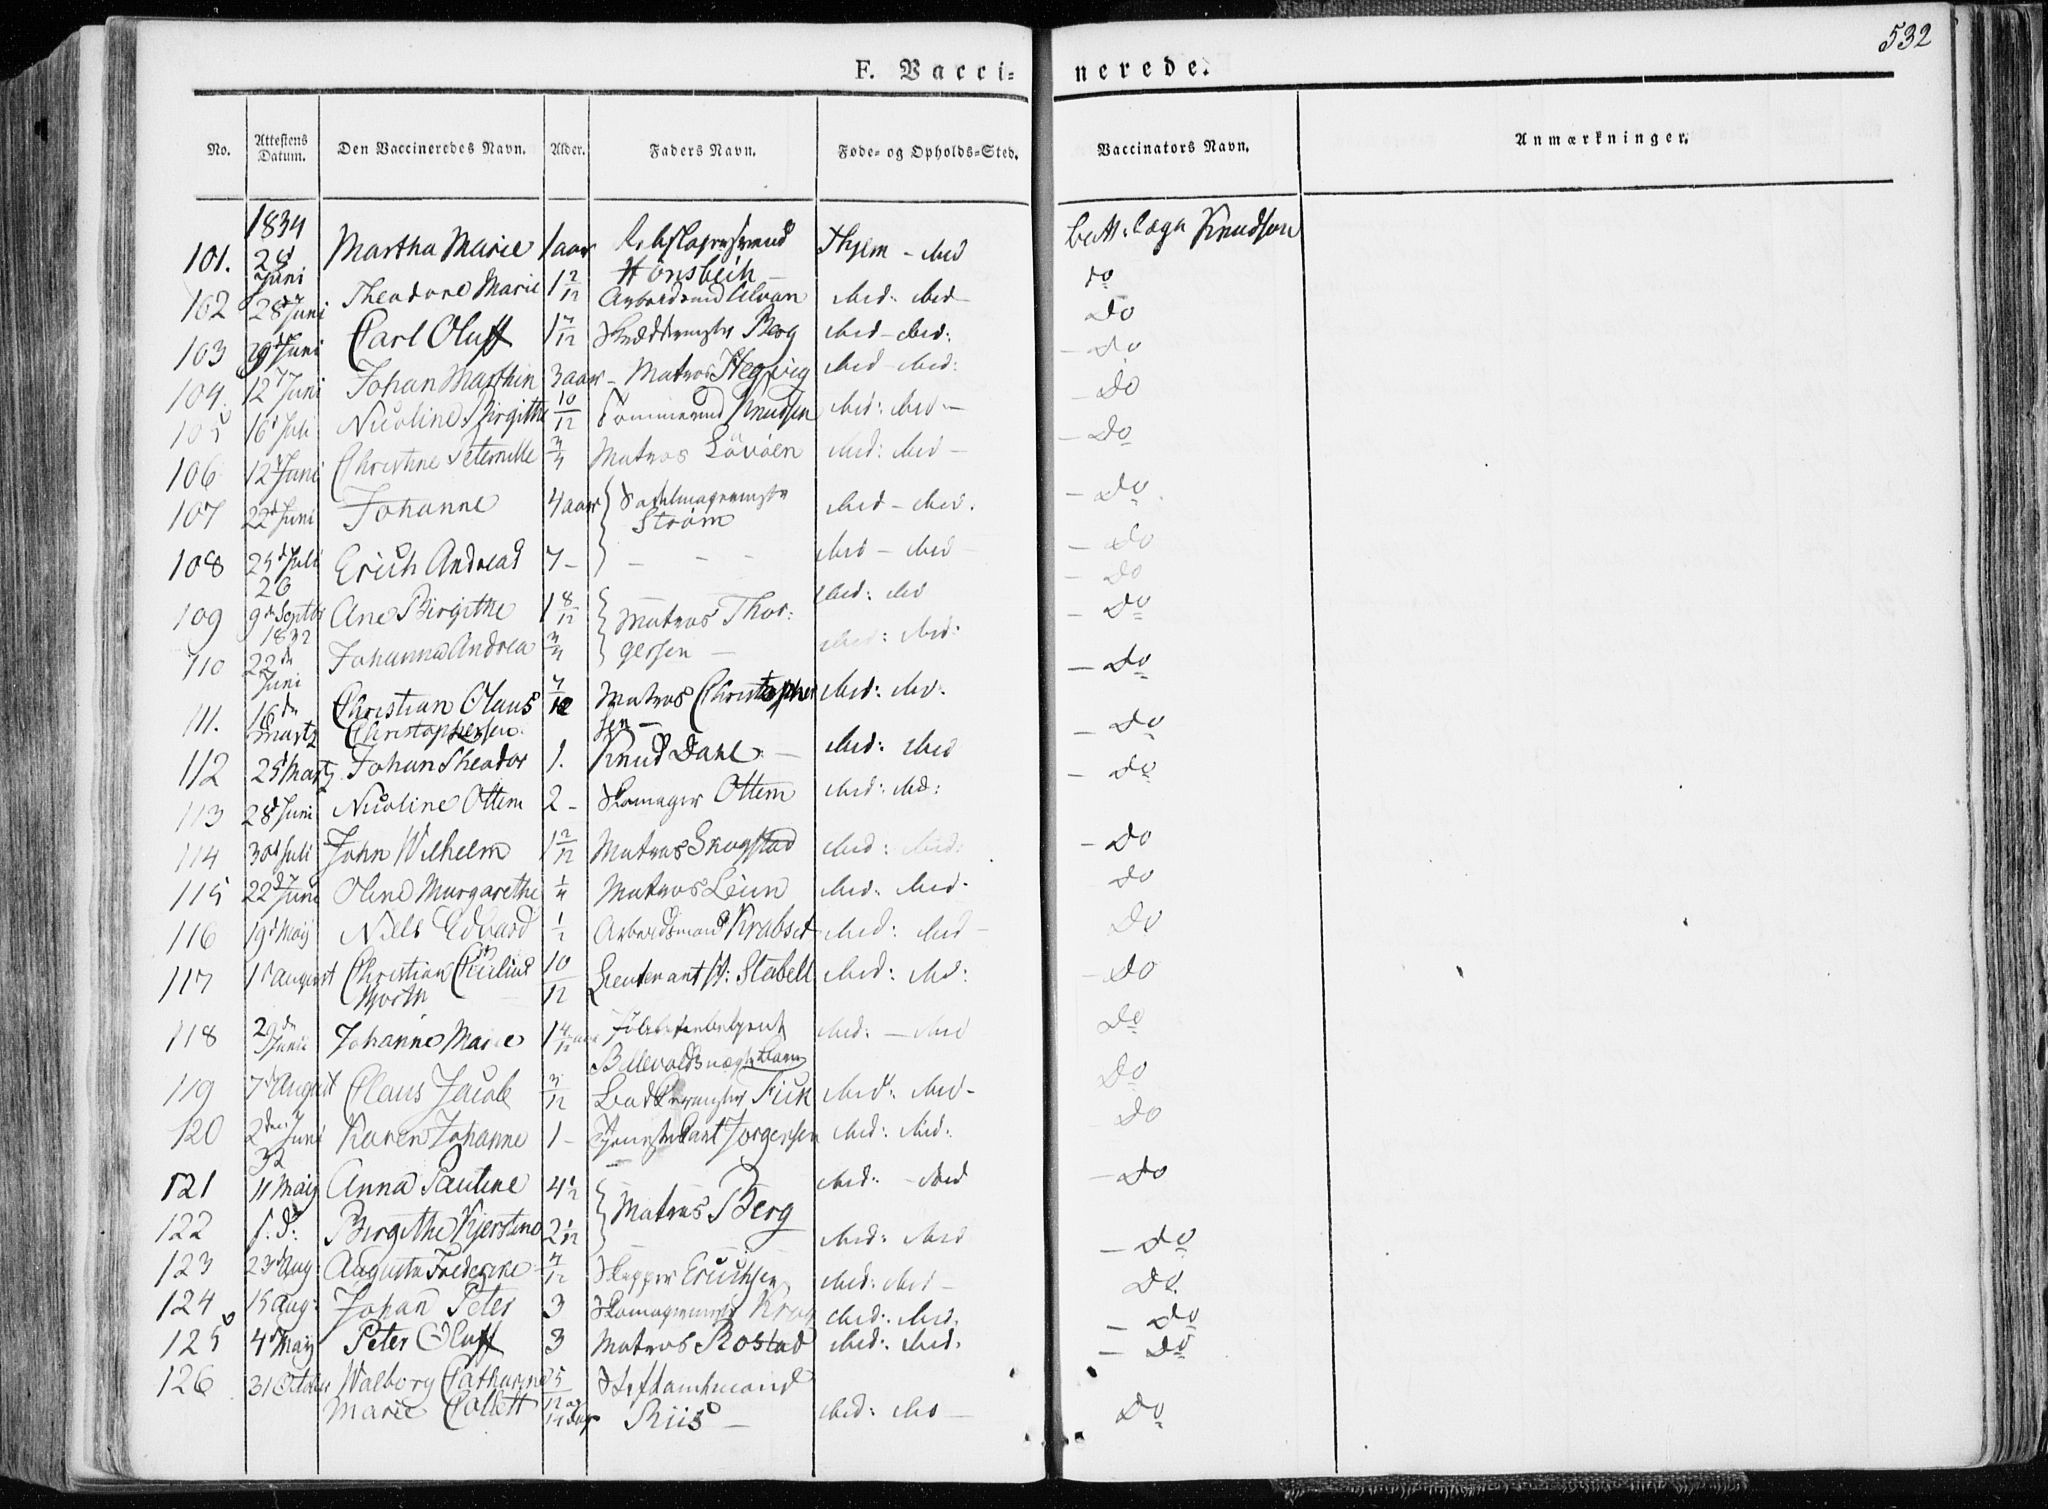 532
F. Vacci= nerede.
No. Attestens Datum. Den Vaccineredes Navn. Alder. Faders Navn. Føde- og Opholds-Sted. Vaccinators Navn. Anmærkninger.
1834
101. 28 Juni Martha Marie 1 aar Hønsbeck Thjem - ibid Knudsen
do
102 28d Juni Theodore Marie 1 2/12 ibid: ibid - Do
103 29d Juni Carl Oluff 1 7/12 Berg ibid - ibid: - Do
104. 12d Juni Johan Marthin 3 aar - Matros ibid - ibid: - Do
105 16d Juli Nicoline Birgithe 10/12 Knudsen ibid: ibid - - Do
106 12d Juni Christine Peternille 3/4 Matros Løvöen ibid: ibid -
107 22d Juni Johanne 4 aar Strøm ibid - ibid. - Do
108 25d Juli Erich Andreas 7 - - - - ibid - ibid - Do
26 - Do
109 9d Septbr 1832 Ane Birgithe 1 8/12 Matros Thor: ibid: ibid - Do
110 22de Juni Johanna Andrea 3/4 gersen - ibid: ibid: - Do
111. 16de Martz Christian Olaus Christophersen. 7/12 Matros Christopher sen - ibid: ibid: - Do
112 25d Martz Johan Theodor 1. Knud Dahl - ibid: ibid - Do
113 28d Juni Nicoline Ottem 2 - Skomager Ottem ibid: ibid:
114 30d Juli John Wilhelm 1 2/12 Matros Snogstad ibid: ibid: - Do
115 22d Juni Oline Margarethe 1/4 Matros Leun ibid: ibid. Do
116 19d Maij Niels Edvard 1/2 Arbeidsmand Krabset ibid: ibid - Do
117 1d August Christian Cicilius Hjorth 10/12 Lieutenant Stabell ibid: ibid: - Do
118 2de Junii Johanne Marie 1 4/12 ibid: - ibid Do
119 7d August Claus Jacob 3/12 ibid: ibid - Do
120 2den Juni 32 Karen Johanne 1 - Jørgensen ibid: ibid: Do
121 11 Maij Anna Pauline 4 1/2 Matros Berg ibid: - ibid - Do
122 s. d: Birgithe Kjerstine 2 1/12 ibid: ibid - Do
123 23d Aug: Augusta Frederike 4/12 Skipper Erichsen ibid: ibid - Do.
124 15 Aug: Johan Peter 3 Krog ibid: ibid. - Do
125 4d Maij Peter Oluff 3 Matros Rostad ibid: ibid. - Do
126 31 October Walborg Cathrine 5/12 og Stiftamtmand
Marie Collett 14 dage Riis - ibid: ibid - Do